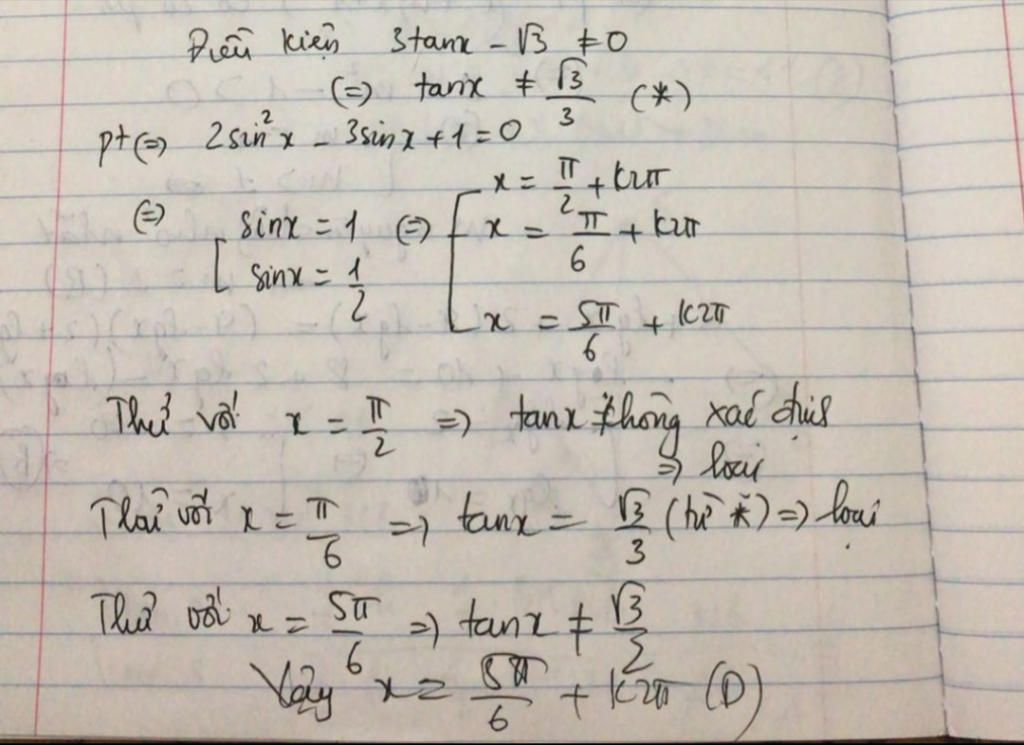 Điều kiện 3tanx - √3 ≠ 0
(=) tanx ≠ √3/3 (*)
pt (=) 2sin²x - 3sinx + 1 = 0
(=) [ sinx = 1 (=) [ x = π/2 + k2π
sinx = 1/2 x = π/6 + k2π
x = 5π/6 + k2π
Thử với x = π/2 => tanx không xác định
=> loại
Thử với x = π/6 => tanx = √3/3 (từ *) => loại
Thử với x = 5π/6 => tanx ≠ √3/2
Vậy x = 5π/6 + k2π (D)